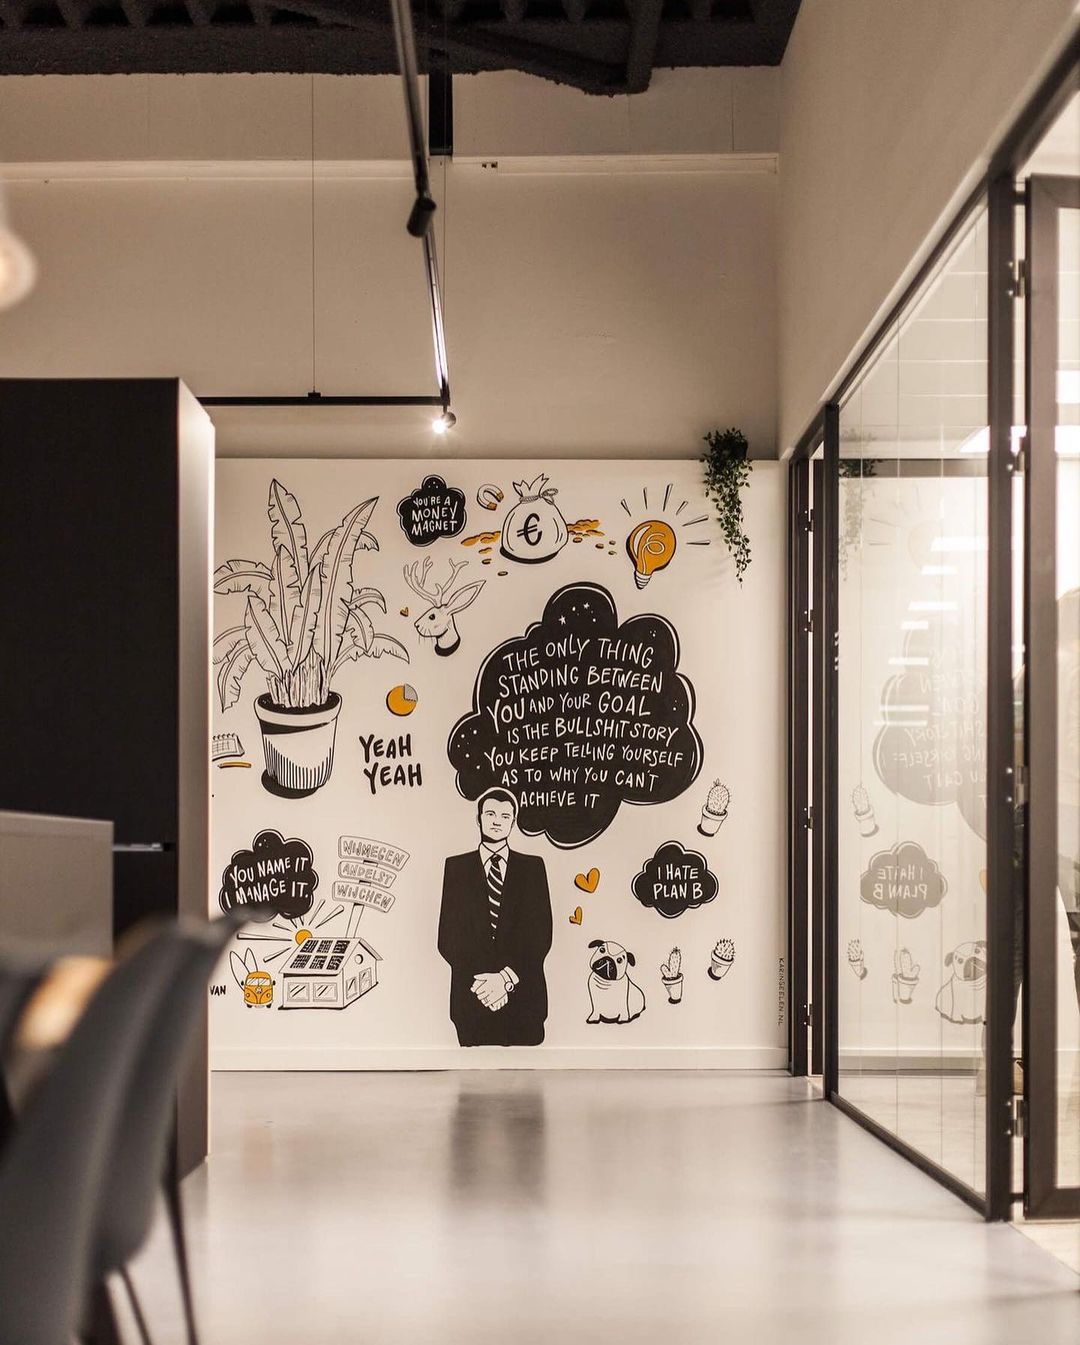 YOU'RE A
MONEY
MAGNET
€
THE ONLY THING
STANDING BETWEEN
YOU AND YOUR GOAL
IS THE BULLSHIT STORY
YOU KEEP TELLING YOURSELF
AS TO WHY YOU CAN'T
ACHIEVE IT
YEAH
YEAH
YOU NAME IT
I MANAGE IT.
NIJMEGEN
ANDELST
WIJCHEN
I HATE
PLAN B
VAN
KARINGEELEN.NL